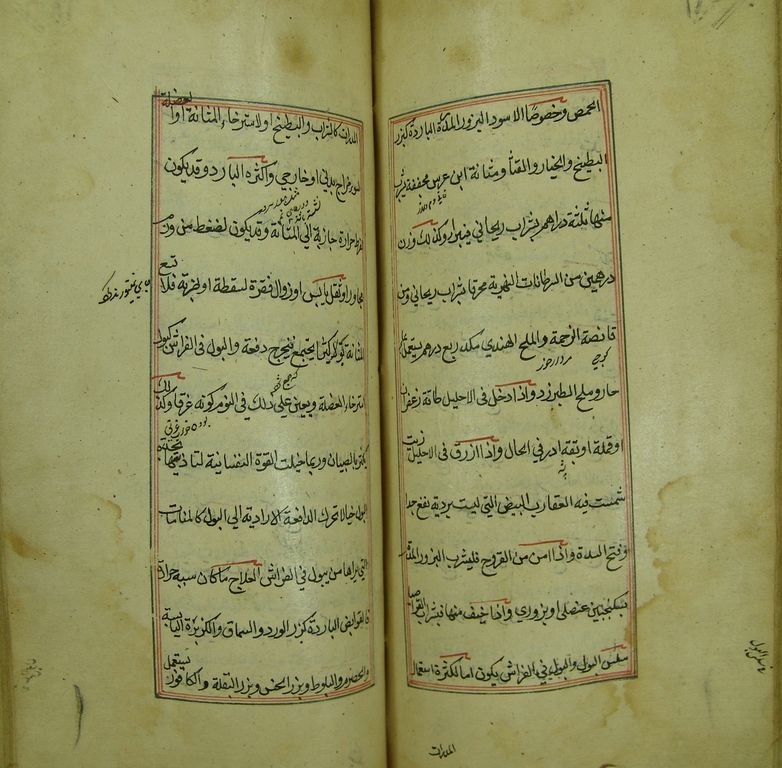 الحمص وخصوصا الاسود البزور المدرة الباردة كبزر
البطيخ والخيار والقثا ومثانة ابن عرس مجففة يشرب
منها ثلثة دراهم بشراب ريحاني فيبرا وكذلك وزن
درهمين من السرطانات النهرية محرقا بشراب ريحاني ومن
قانصة الرخمة والملح الهندي مكد ربع درهم يستعمل
حار وملح الطبرزد واذا ادخل في الاحليل طاقة زعفران
او قملة او بقة ادر في الحال واذا ازرق في الاحليل زيت
شمست فيه العقارب البيض التي ليست بردية نفع جدا
وفتح السدة واذا امن من القروح فليشرب البزور المدرة
بسكنجبين عنصلي او بزوري واذا خيف منها فبشراب
سلس البول والبول في الفراش يكون اما لكثرة استعمال
المدرات
سلس البول
المدرات كالشراب والبطيخ او لاسترخاء المثانة او العضلة
لسوء مزاج بدني او خارجي واكثره البارد وقد يكون
حرارة جاذبة الي المثانة وقد يكون لضغط من ورم
مجاور او ثقل يابس او زوال فقرة لسقطة او ضربة فلا تسع
المثانة بولا كثيرا يجتمع فيخرج دفعة والبول في الفراش يكون
لاسترخاء العضلة ويعين علي ذلك في النوم كونه غرقا ولذلك
يكثر بالصبيان وربما خيلت القوة النفسانية لتاذيها
البول خيالا تحرك الدافعة الارادية الي البول كالمنامات
التي يراها من يبول في الفراش العلاج ما كان سببه حرارة
فالقوابض الباردة كبزر الورد والسماق والكزبرة اليابسة
والحصرم والبلوط وبزر الخس وبزر البقلة والكافور يستعمل